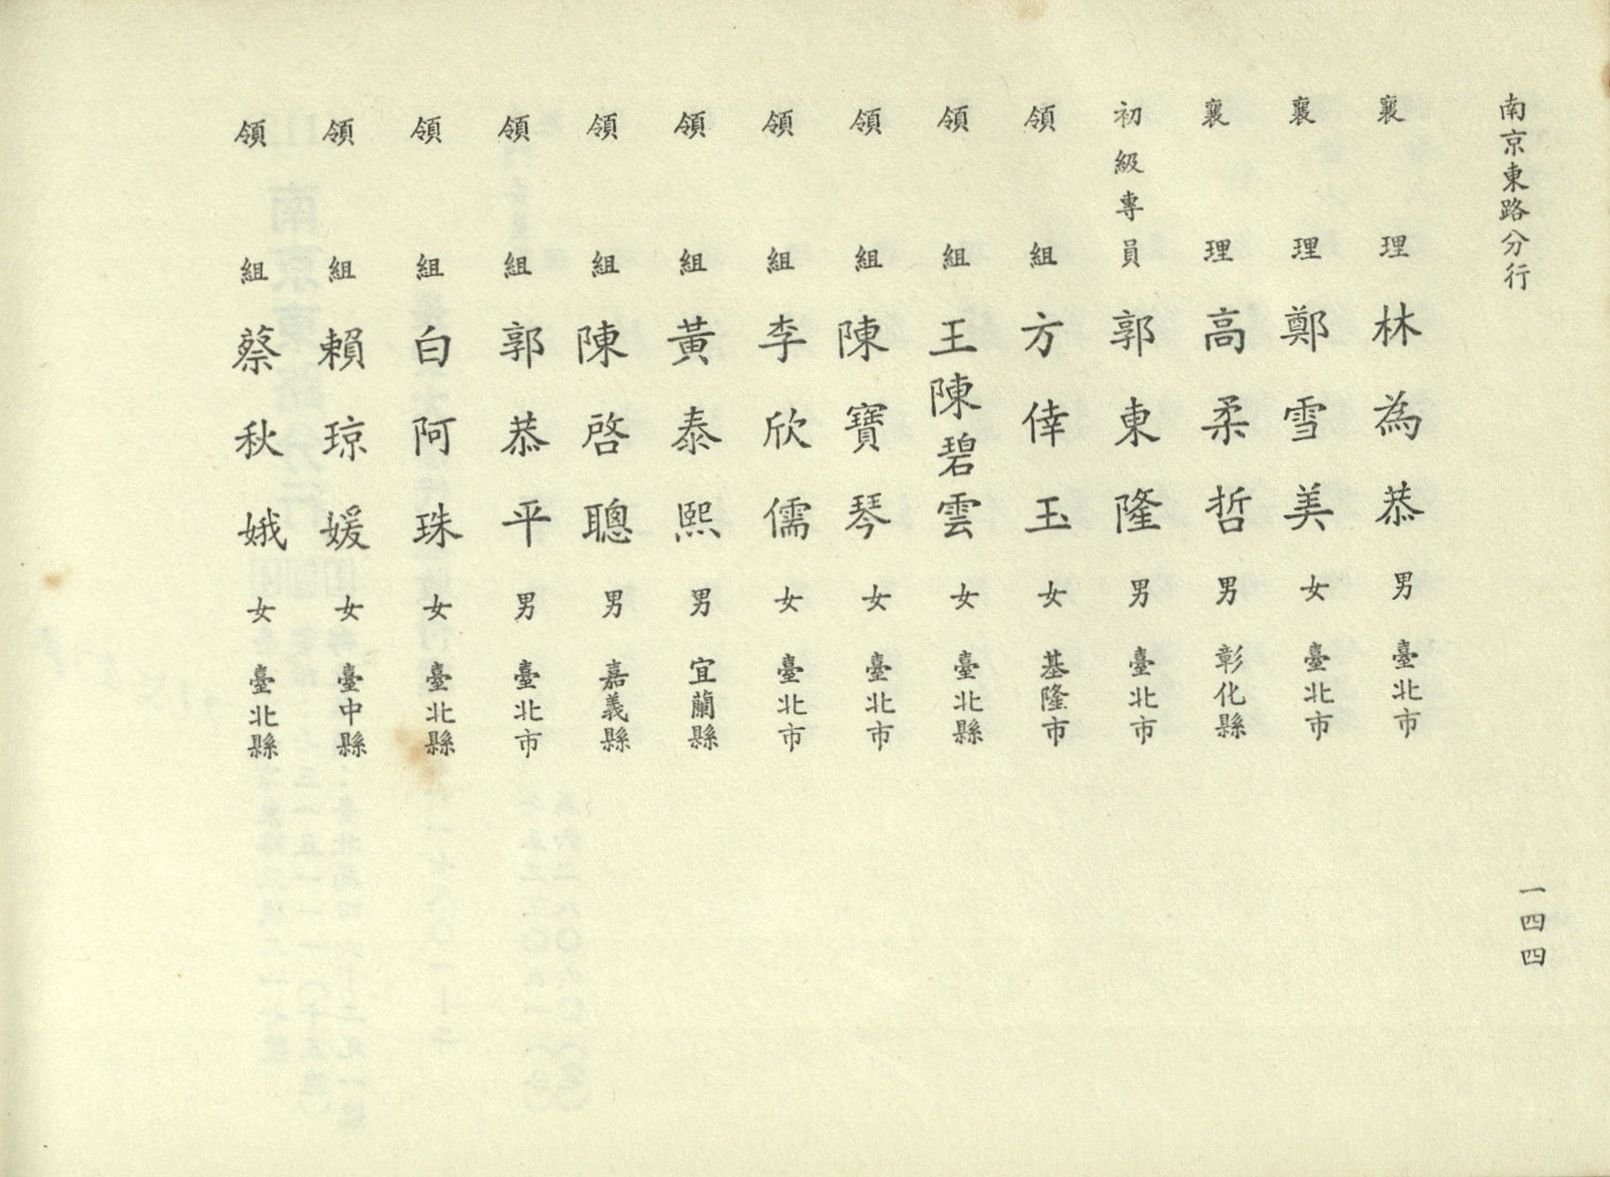 南京東路分行
襄理 林為恭 男 臺北市
襄理 鄭雪美 女 臺北市
襄理 高柔哲 男 彰化縣
初級專員 郭東隆 男 臺北市
領組 方倖玉 女 基隆市
領組 王陳碧雲 女 臺北縣
領組 陳寶琴 女 臺北市
領組 李欣儒 女 臺北市
領組 黃泰熙 男 宜蘭縣
領組 陳啓聰 男 嘉義縣
領組 郭恭平 男 臺北市
領組 白阿珠 女 臺北縣
領組 賴琼媛 女 臺中縣
領組 蔡秋娥 女 臺北縣
一四四